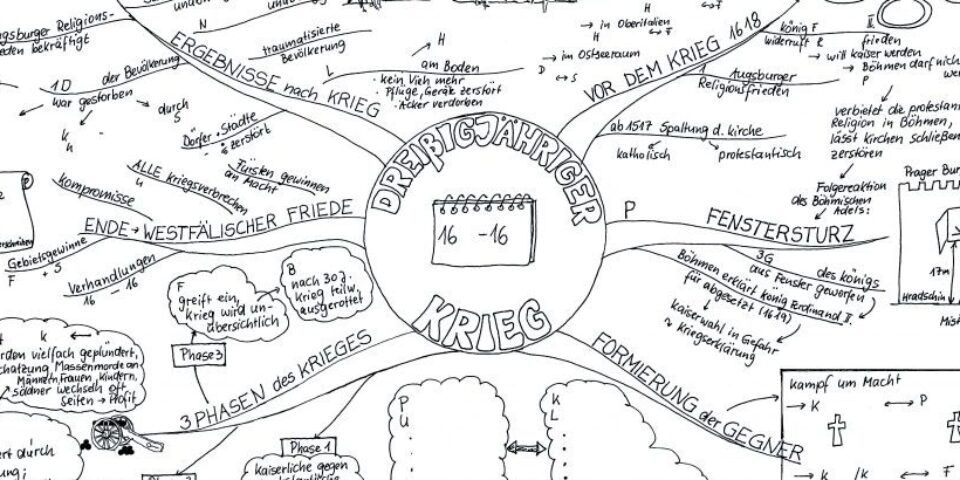 DREIßIGJÄHRIGER
KRIEG
16 -16
ERGEBNISSE nach KRIEG
Religions-
bekräftigt
N
traumatisierte
Bevölkerung
L
am Boden
H
· kein Vieh mehr
· Pflüge, Geräte zerstört
· Äcker verdorben
1 D
der Bevölkerung
war gestorben
durch
S
k
h
Dörfer + Städte
zerstört
H
→ in Oberitalien
H
F
→ im Ostseeraum
D
S
VOR DEM KRIEG 1618
könig F II.
widerruft R frieden
→ will kaiser werden
→ Böhmen darf nicht
P
1
Augsburger
Religionsfrieden
verbietet die
Religion in Böhmen,
lässt Kirchen schließen
zerstören
Folgereaktion
des Böhmischen
Adels:
ab 1517 Spaltung d. kirche
katholisch
protestantisch
P
FENSTERSTURZ
3G des königs
aus Fenster geworfen
Böhmen erklärt könig Ferdinand II.
für abgesetzt (1619)
Kaiserwahl in Gefahr
Kriegserklärung
Prager
17m
Hradschin
ENDE → WESTFÄLISCHER FRIEDE
kompromisse
ALLE kriegsverbrechen
u
Fürsten gewinnen
an Macht
Gebietsgewinne
F + S
Verhandlungen
16 - 16
3 PHASEN des KRIEGES
F
greift ein,
Krieg wird un-
übersichtlich
B
nach 30 J.
Krieg teilw.
ausgerottet
Phase 3
k
vielfach geplündert,
Massenmorde an
Männern, Frauen, Kindern,
söldner wechseln oft
Seiten → Profit
durch
Phase 1
kaiserliche gegen
FORMIERUNG der GEGNER
P
U
K
L
kampf um Macht
→ K
P
→ k
/k
F